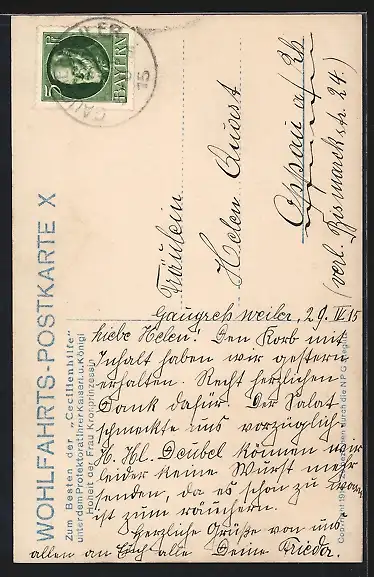 WOHLFAHRTS-POSTKARTE X
Zum Besten der „Cecilienhilfe"
unter dem Protektorat Ihrer Kaiserl. u. Königl
Hoheit der Frau Kronprinzessin
5 PF
BAYERN
15
Fräulein
Helen
Oppau a/Rh
(verl. Bismarckstr. 24.)
Gaugrehweiler, 29. IV 15
Liebe Helen! Den Korb mit
Inhalt haben wir gestern
erhalten. Recht herzlichen
Dank dafür. Der Salat
schmeckte uns vorzüglich
H. Hl. Deubel können wir
leider keine Wurst mehr
senden, da es schon zu warm
ist zum räuchern.
Herzliche Grüße von uns
allen an Euch alle Deine Frieda.